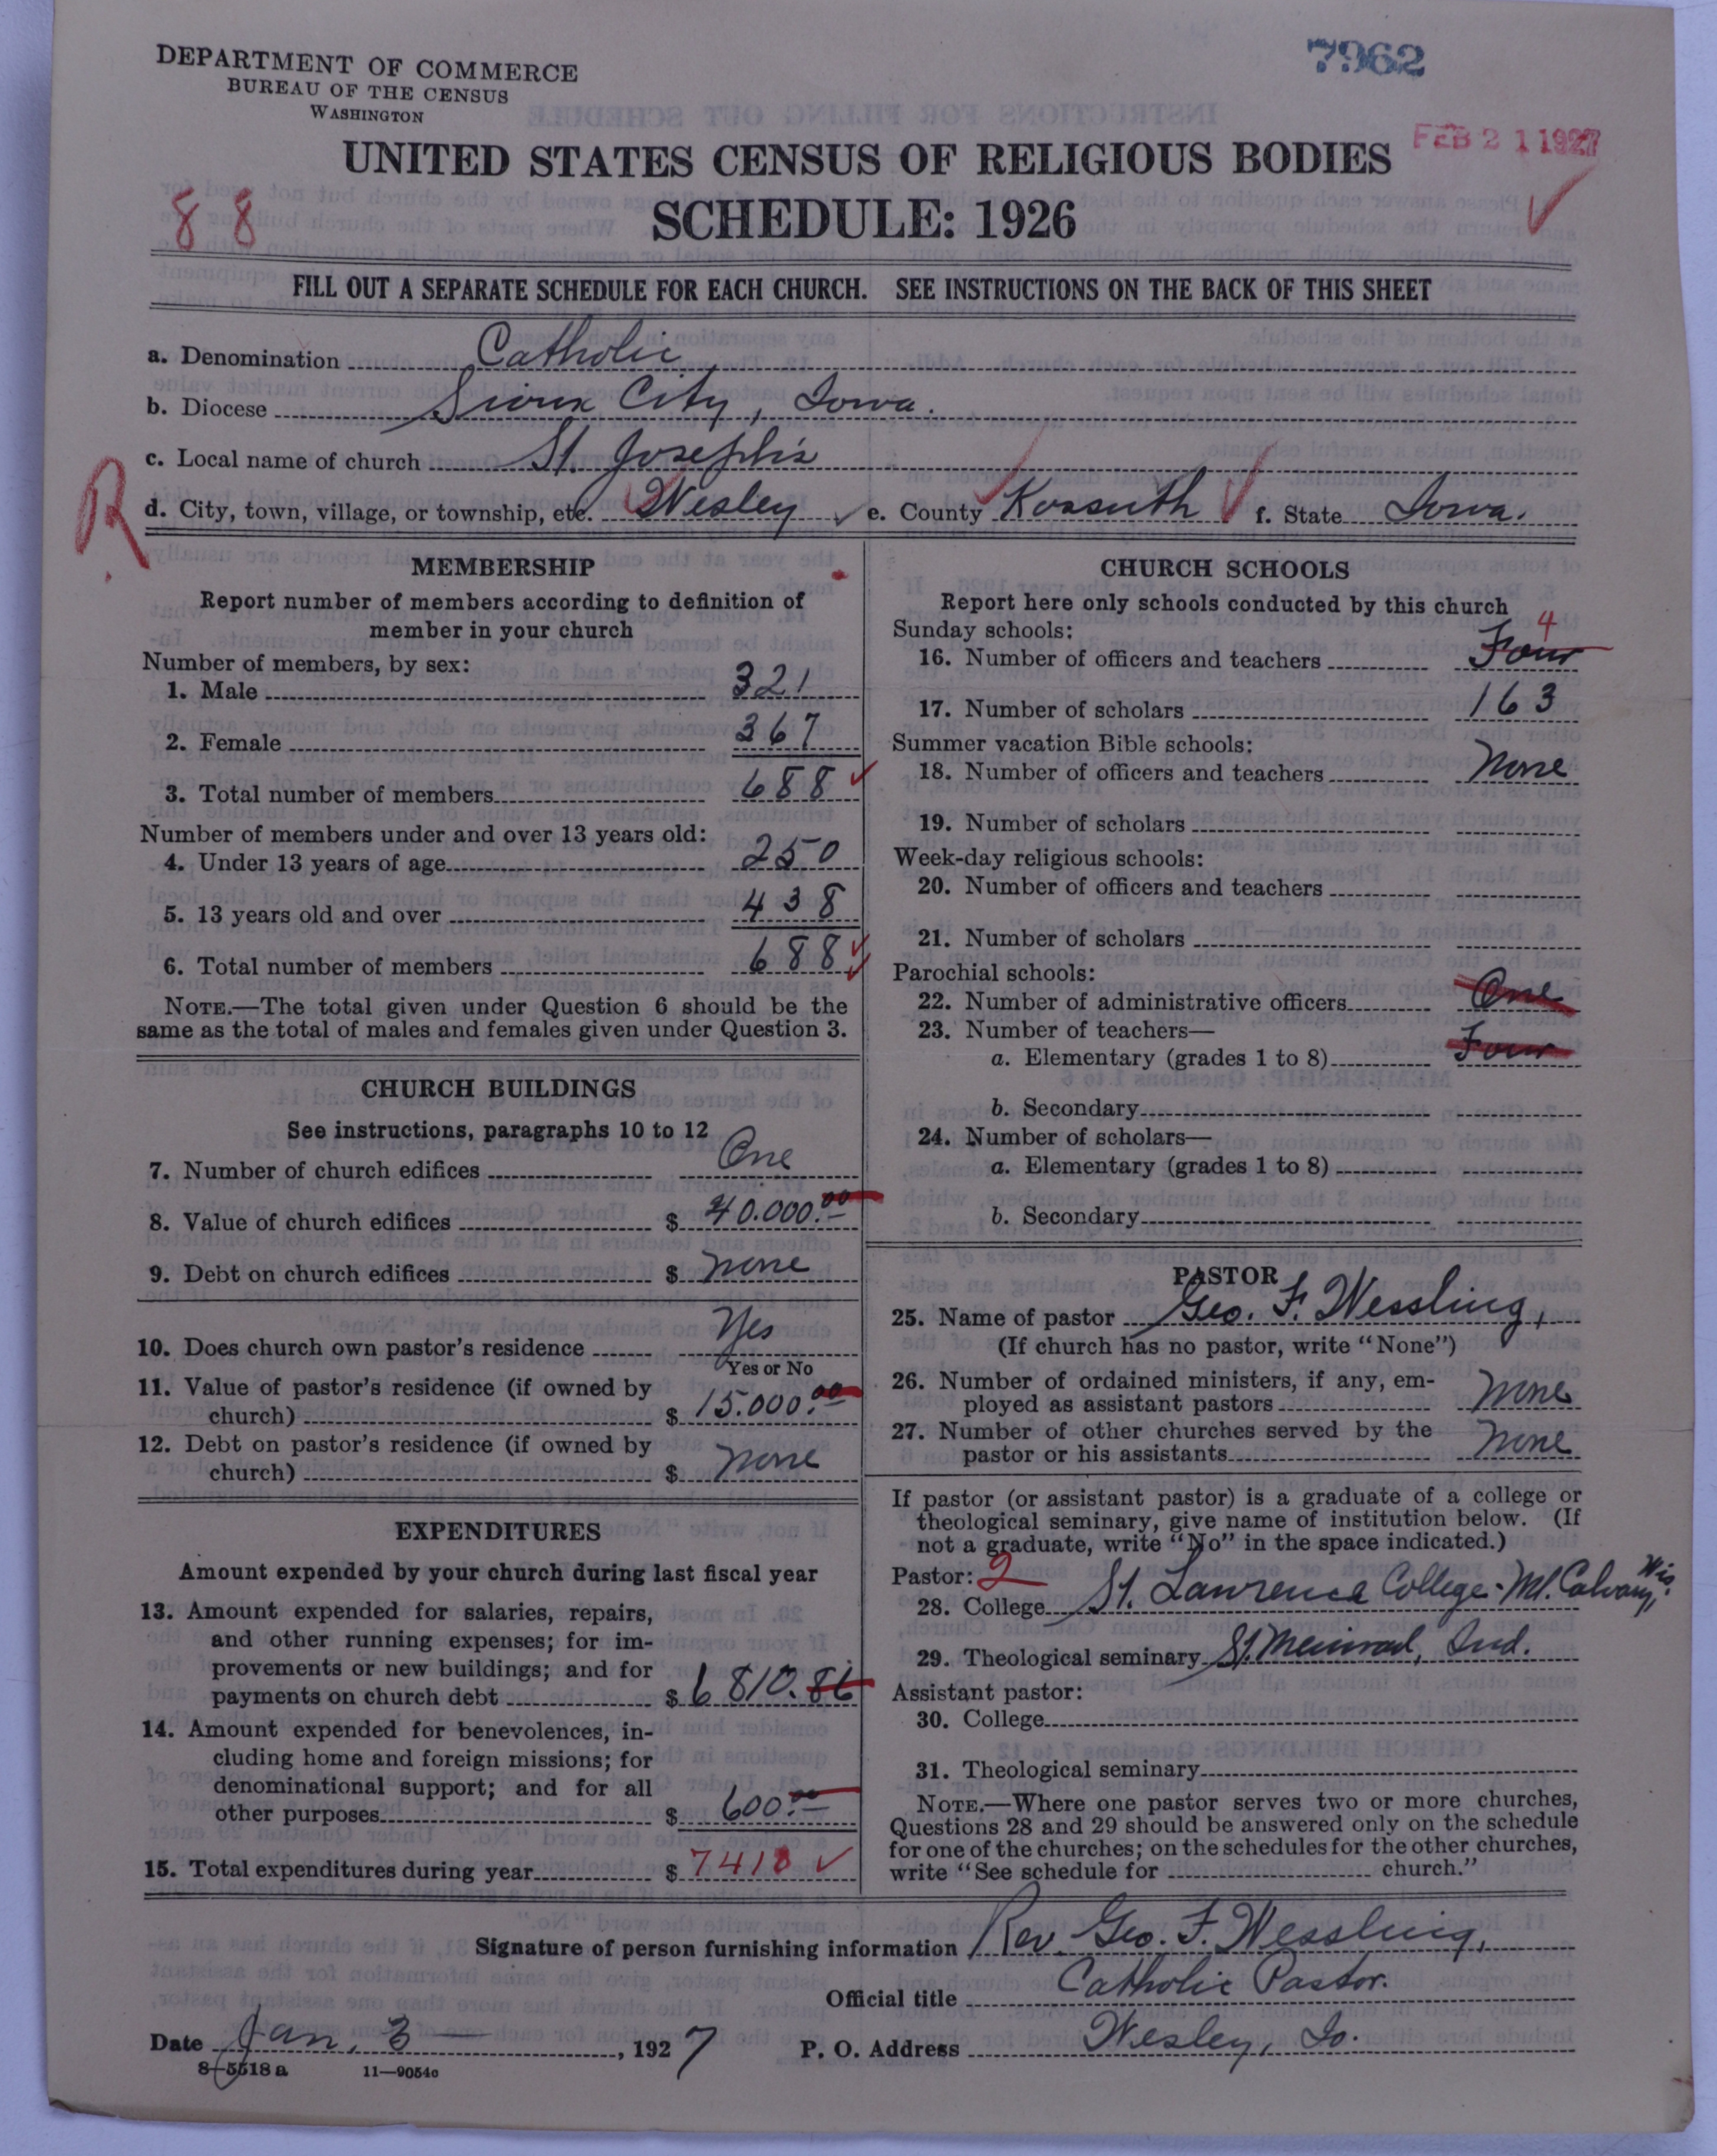 DEPARTMENT OF COMMERCE
BUREAU OF THE CENSUS
WASHINGTON
7962
FEB 21 1927
UNITED STATES CENSUS OF RELIGIOUS BODIES
SCHEDULE: 1926
88
FILL OUT A SEPARATE SCHEDULE FOR EACH CHURCH. SEE INSTRUCTIONS ON THE BACK OF THIS SHEET
a. Denomination Catholic
b. Diocese Sioux City, Iowa.
c. Local name of church St. Joseph's
R
d. City, town, village, or township, etc. Wesley e. County Kossuth f. State Iowa.
MEMBERSHIP
Report number of members according to definition of
member in your church
Number of members, by sex:
1. Male 321
2. Female 367
3. Total number of members 688
Number of members under and over 13 years old:
4. Under 13 years of age 250
5. 13 years old and over 438
6. Total number of members 688
NOTE.—The total given under Question 6 should be the
same as the total of males and females given under Question 3.
CHURCH BUILDINGS
See instructions, paragraphs 10 to 12
7. Number of church edifices One
8. Value of church edifices $ 40.000.00
9. Debt on church edifices $ none
10. Does church own pastor's residence Yes
Yes or No
11. Value of pastor's residence (if owned by
church) $ 15.000.00
12. Debt on pastor's residence (if owned by
church) $ none
EXPENDITURES
Amount expended by your church during last fiscal year
13. Amount expended for salaries, repairs,
and other running expenses; for im-
provements or new buildings; and for
payments on church debt $ 6810.86
14. Amount expended for benevolences, in-
cluding home and foreign missions; for
denominational support; and for all
other purposes $ 600.00
15. Total expenditures during year $ 7410
CHURCH SCHOOLS
Report here only schools conducted by this church
Sunday schools: 4
16. Number of officers and teachers Four
17. Number of scholars 163
Summer vacation Bible schools:
18. Number of officers and teachers None
19. Number of scholars
Week-day religious schools:
20. Number of officers and teachers
21. Number of scholars
Parochial schools:
22. Number of administrative officers One
23. Number of teachers—
a. Elementary (grades 1 to 8) Four
b. Secondary
24. Number of scholars—
a. Elementary (grades 1 to 8)
b. Secondary
PASTOR
25. Name of pastor Geo. F. Wessling,
(If church has no pastor, write "None")
26. Number of ordained ministers, if any, em-
ployed as assistant pastors None
27. Number of other churches served by the
pastor or his assistants None
If pastor (or assistant pastor) is a graduate of a college or
theological seminary, give name of institution below. (If
not a graduate, write "No" in the space indicated.)
Pastor: 2
28. College St. Lawrence College - Mt. Calvary, Wis.
29. Theological seminary St. Meinrad, Ind.
Assistant pastor:
30. College
31. Theological seminary
NOTE.—Where one pastor serves two or more churches,
Questions 28 and 29 should be answered only on the schedule
for one of the churches; on the schedules for the other churches,
write "See schedule for church."
Signature of person furnishing information Rev. Geo. F. Wessling,
Official title Catholic Pastor.
Date Jan. 3 — , 1927 P. O. Address Wesley, Io.
8—5518 a 11—9054c